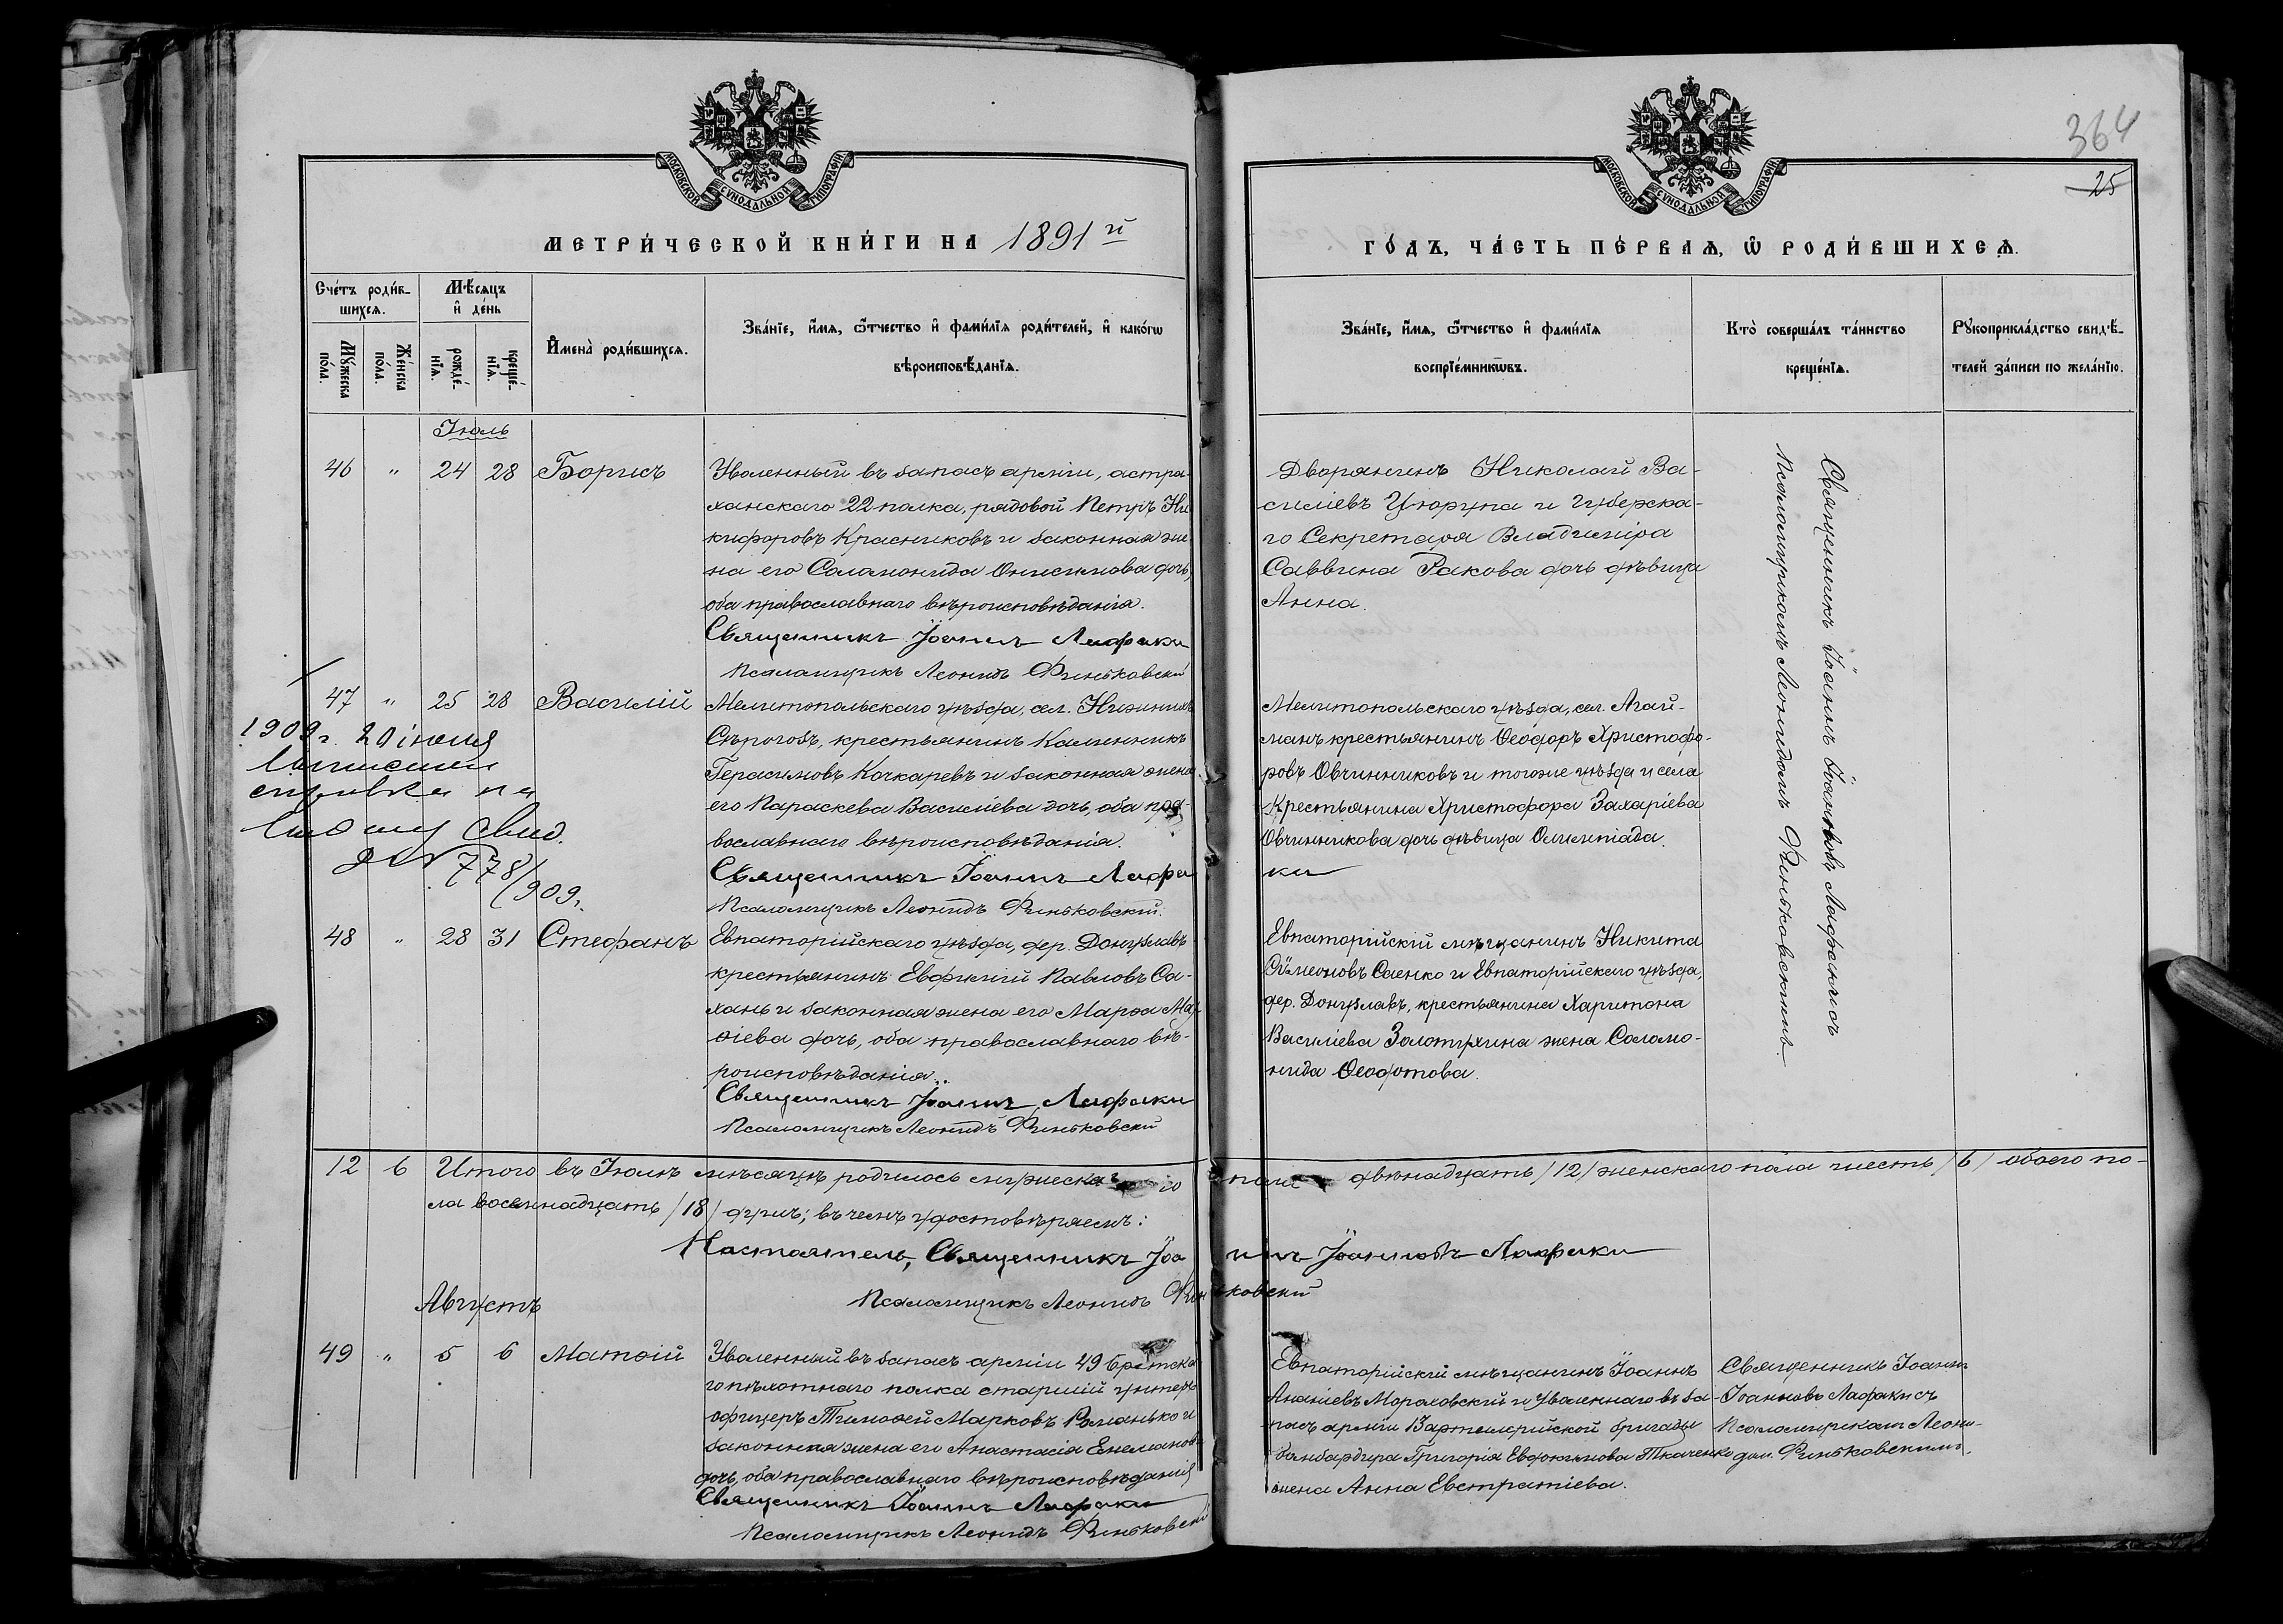 364
25
МОСКОВСКОЙ СѴНОДАЛЬНОЙ ТИПОГРАФІИ
МОСКОВСКОЙ СѴНОДАЛЬНОЙ ТИПОГРАФІИ
МЕТРИ́ЧЕСКОЙ КНИ́ГИ НА 1891 й
ГО́ДЪ, ЧА́СТЬ ПЕ́РВАѦ, Ѡ РОДИ́ВШИХСѦ.
Сче́тъ роди́в-
шихсѧ.
Мѣ́сѧцъ
и҆ де́нь
Мꙋ́жеска
по́ла.
Же́нска
по́ла.
рожде́-
нїѧ.
креще́-
нїѧ.
И҆мена̀ роди́вшихсѧ.
Зва́нїе, и҆́мѧ, ѻ҆́тчество и҆ фами́лїѧ роди́телей, и҆ како́гѡ
вѣроисповѣ́данїѧ.
Зва́нїе, и҆́мѧ, ѻ҆́тчество и҆ фами́лїѧ
воспрїе́мникѡвъ.
Кто̀ соверша́лъ та́инство
креще́нїѧ.
Рꙋкоприкла́дство свидѣ́-
телей за́писи по жела́нїю.
Іюль
46 " 24 28 Борисъ
Уволенный въ запасъ арміи, астра-
ханскаго 22 полка, рядовой Петръ Ни
кифоровъ Красниковъ и законная же
на его Соломонида Онисимова дочь,
оба православнаго вѣроисповѣданія.
Священникъ Іоаннъ Лафаки
Псаломщикъ Леонидъ Финьковскій
Дворянинъ Николай Ва-
силіевъ Цюрупа и Губерска-
го Секретаря Владиміра
Саввина Ракова дочь дѣвица
Анна.
Священникъ Іоаннъ Іоанновъ Лафакисъ
Псаломщикомъ Леонидомъ Финьковскимъ.
47 " 25 28 Василій
1909 г. 20 іюня
справка на
свид.
778/909 г.
Мелитопольскаго уѣзда, сел. Нижнихъ
Сѣрогозъ, крестьянинъ Калинникъ
Герасимовъ Кочкаревъ и законная жена
его Параскева Василіева дочь, оба пра-
вославнаго вѣроисповѣданія.
Священникъ Іоаннъ Лафаки
Псаломщикъ Леонидъ Финьковскій.
Мелитопольскаго уѣзда, сел. Агай-
манъ крестьянинъ Ѳеодоръ Христофо-
ровъ Овчинниковъ и тогоже уѣзда и села
Крестьянина Христофора Захаріева
Овчинникова дочь дѣвица Олимпіада.
48 " 28 31 Стефанъ
Евпаторійскаго уѣзда, дер. Донузлавъ
крестьянинъ Евфимій Павловъ Са-
хань и законная жена его Марѳа Мат-
ѳіева дочь, оба православнаго вѣ-
роисповѣданія.
Священникъ Іоаннъ Лафаки
Псаломщикъ Леонидъ Финьковскій
Евпаторійскій мѣщанинъ Никита
Сѵмеоновъ Саенко и Евпаторійскаго уѣзда,
дер. Донузлавъ, крестьянина Харитона
Василіева Золотухина жена Соломо-
нида Ѳеодотова.
12 6 Итого въ Іюлѣ мѣсяцѣ родилось мужескаго пола двѣнадцать /12/ женскаго пола шесть /6/ обоего по-
ла восемнадцать /18/ душъ; въ чемъ удостовѣряемъ:
Настоятель, Священникъ Іоаннъ Іоанновъ Лафаки
Псаломщикъ Леонидъ Финьковскій
Августъ
49 " 5 6 Матѳій
Уволенный въ запасъ арміи 49 Брестска
го пѣхотнаго полка старшій унтеръ
офицеръ Тимоѳей Марковъ Романько и
законная жена его Анастасія Емеліанов
дочь, оба православнаго вѣроисповѣданія
Священникъ Іоаннъ Лафаки
Псаломщикъ Леонидъ Финьковскій
Евпаторійскій мѣщанинъ Іоаннъ
Ананіевъ Мораховскій и Уволеннаго въ за-
пасъ арміи 13 артилерійской бригады
бомбардира Григорія Евфимова Ткаченко
жена Анна Евстратіева.
Священникъ Іоаннъ
Іоанновъ Лафакисъ
Псаломщикомъ Леони-
домъ Финьковскимъ.